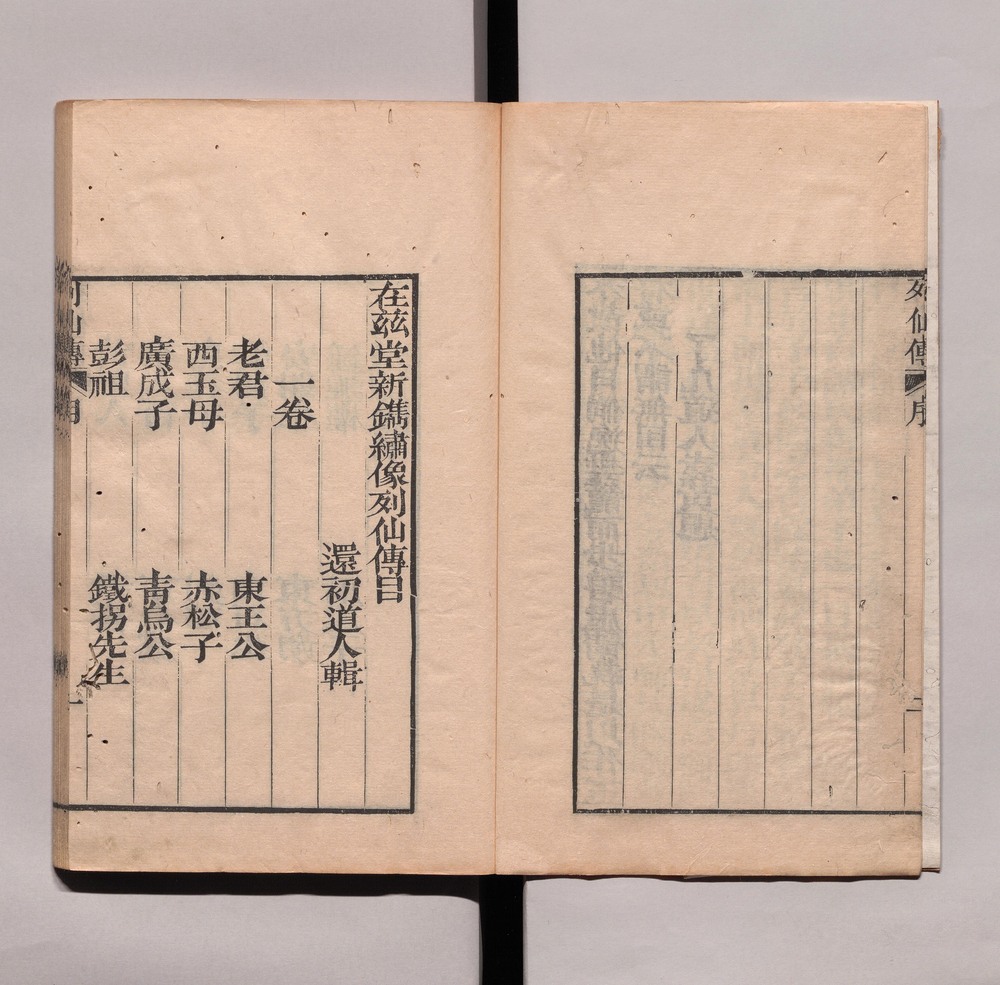 列仙傳
序
二
在兹堂新鐫繡像列仙傳目
還初道人輯
一卷
老君 東王公
西玉母 赤松子
廣成子 青烏公
彭祖 鐵拐先生
列仙傳
目
一